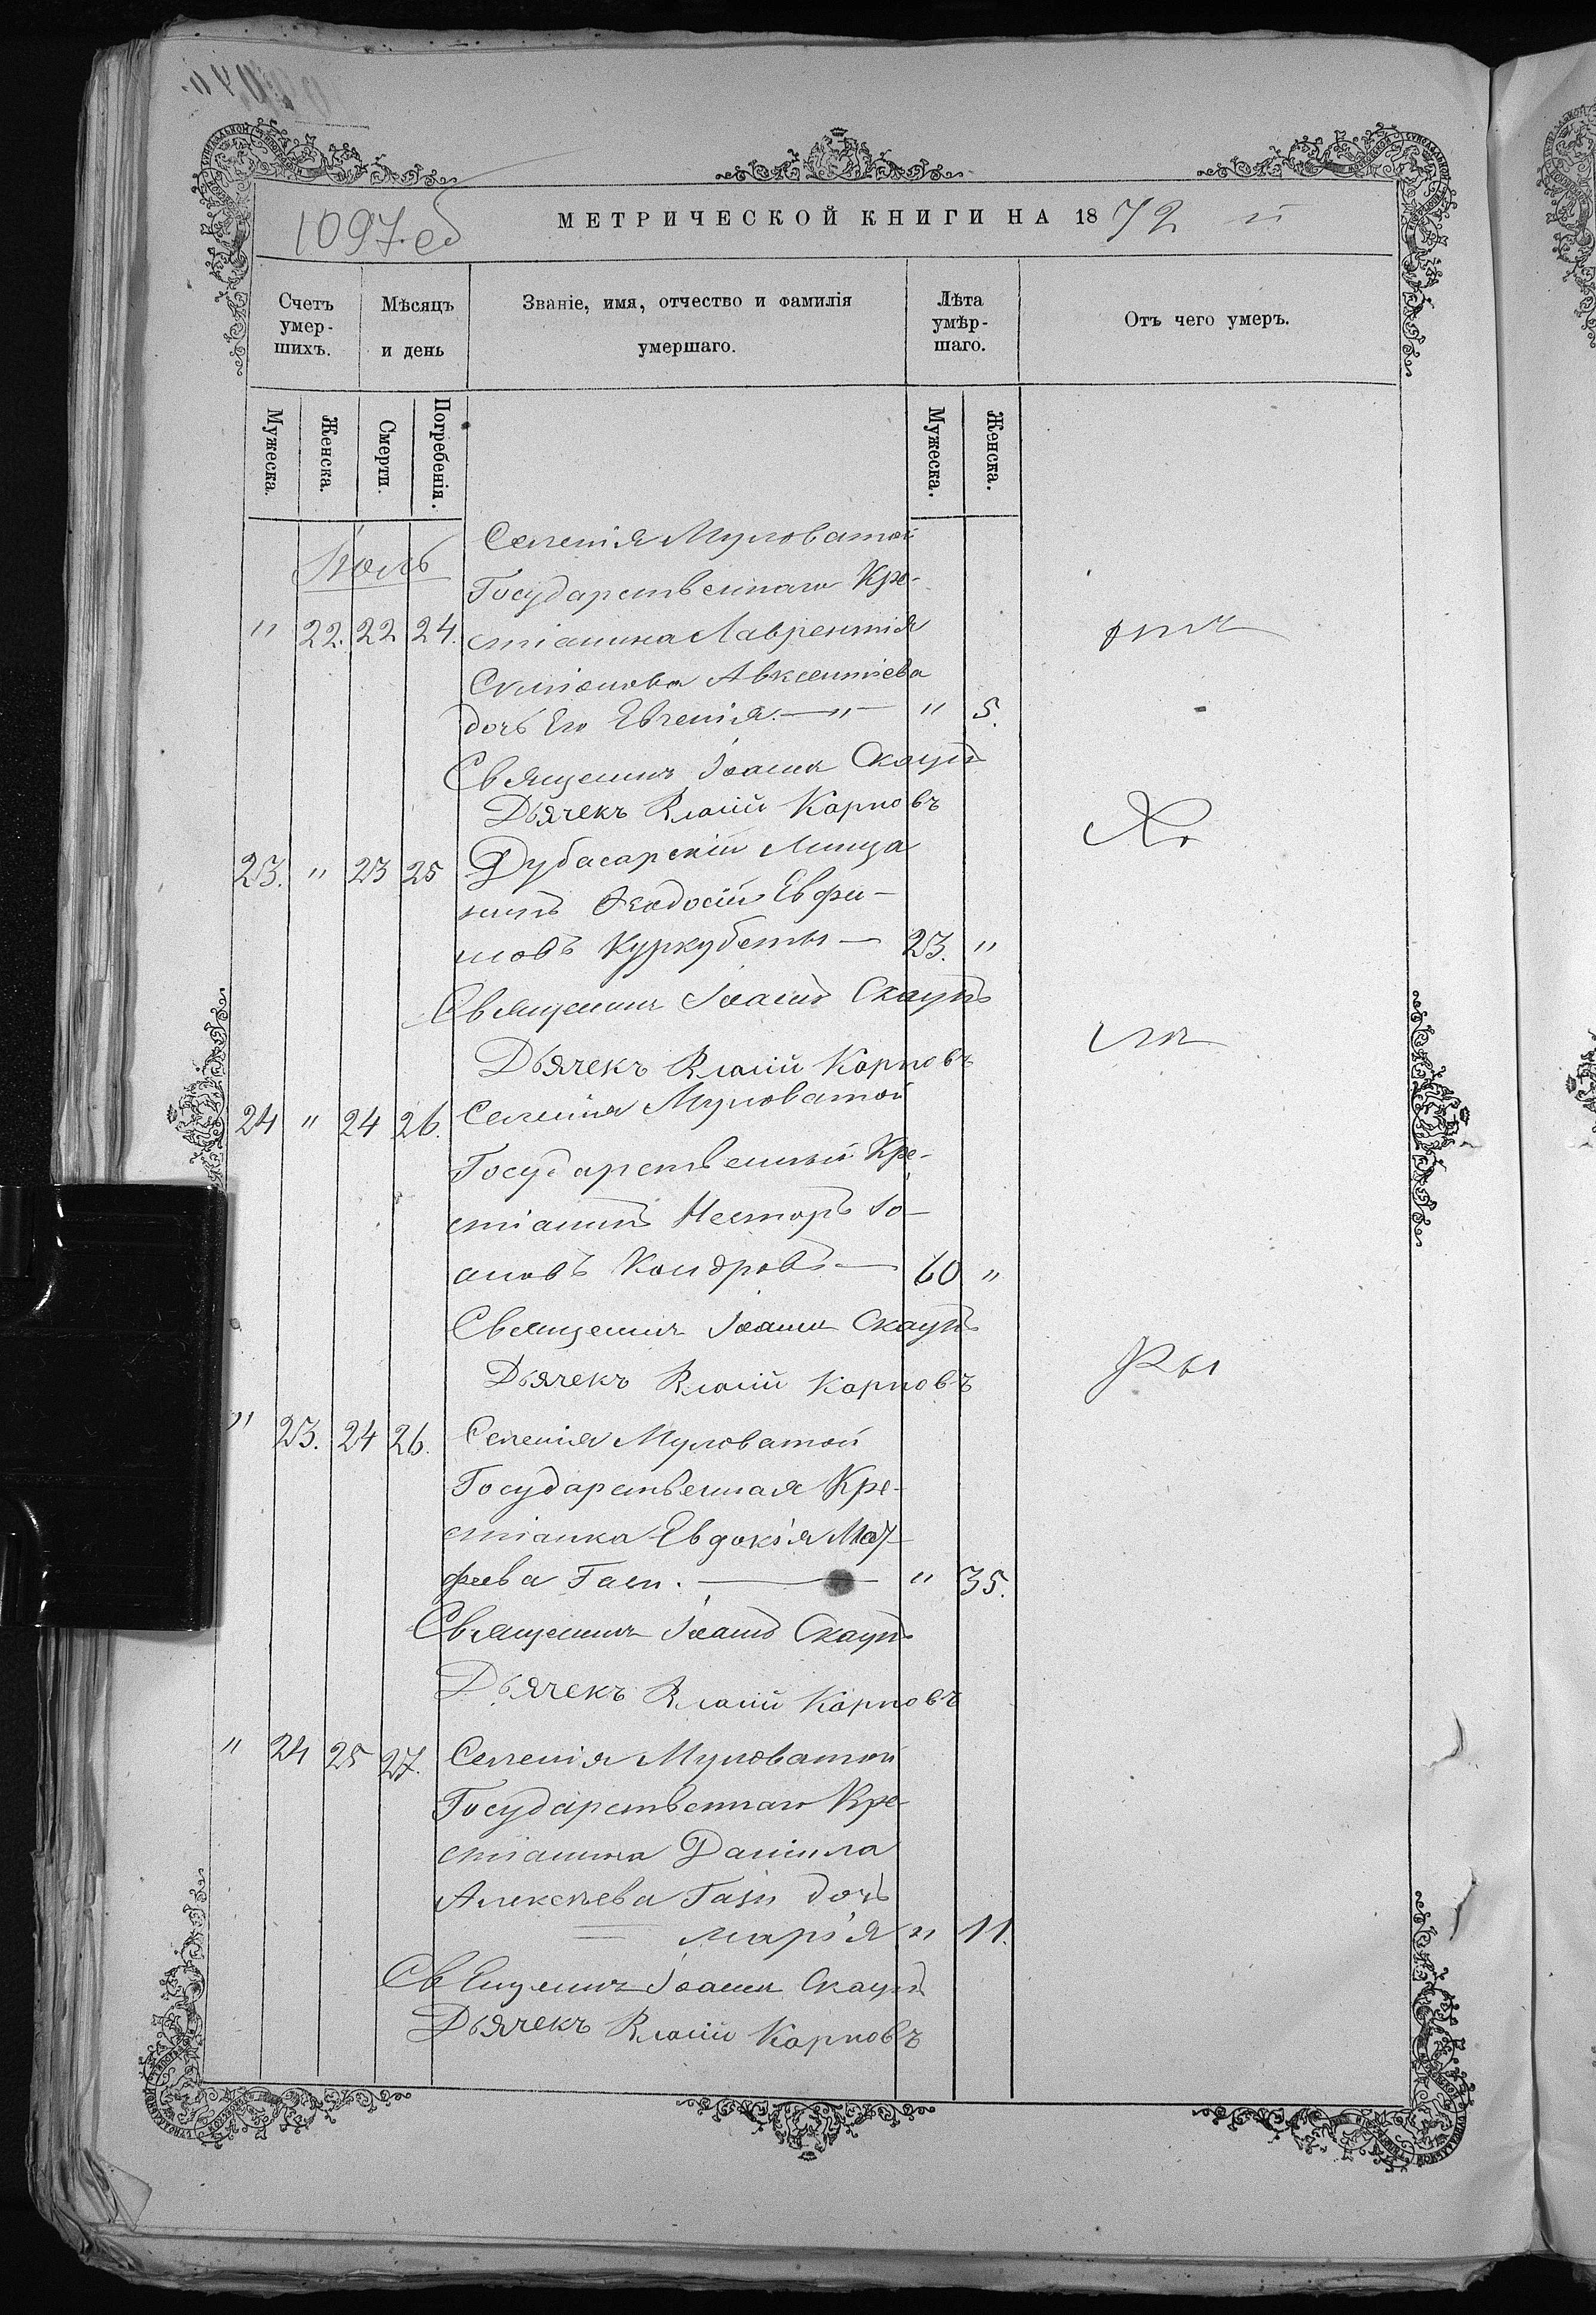 1097 об
МЕТРИЧЕСКОЙ КНИГИ НА 1872 й
Счетъ умер- шихъ.
Мѣсяцъ и день
Званіе, имя, отчество и фамилія умершаго.
Лѣта умѣр- шаго.
Отъ чего умеръ.
Мужеска. Женска. Смерти. Погребенія. Мужеска. Женска.
Іюль
Селенія Муловатой
Государственнаго Кре-
" 22. 22 24. стіанина Лаврентія
Авксентіева
дочь Его Евгенія. — " — " 5.
Священникъ Іоаннъ Скаунъ
Дьячекъ Власій Карповъ
23. " 23 25 Дубасарскій Мища
нинъ Феодосій Евфи-
мовъ Куркубетъ — 23. "
Священникъ Іоаннъ Скаунъ
Дьячекъ Власій Карповъ
24 " 24 26. Селенія Муловатой
Государственный Кре-
стіанинъ Несторъ Іо-
ановъ Кондровъ — 60 "
Священникъ Іоаннъ Скаунъ
Дьячекъ Власій Карповъ
" 23. 24 26. Селенія Муловатой
Государственная Кре-
стіанка Евдокія Мат-
феева Ганг. — " 35.
Священникъ Іоаннъ Скаунъ
Дьячекъ Власій Карповъ
" 24 25 27. Селенія Муловатой
Государственнаго Кре-
стіанина Даніила
Алексѣева дочь
Марія " 11.
Священникъ Іоаннъ Скаунъ
Дьячекъ Власій Карповъ